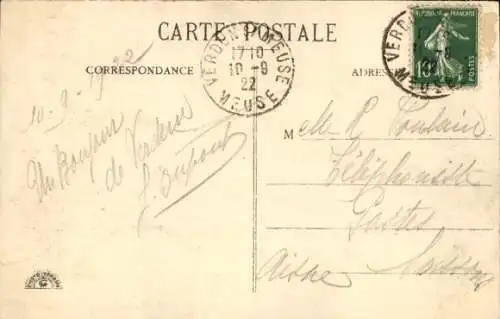 CARTE POSTALE
CORRESPONDANCE
ADRES
VERDUN MEUSE
17 10
10 - 9
22
MEUSE
VERD
REPUBLIQUE FRANÇAISE
POSTES
10-9-1922
Un Bonjour
de Verdun
Dupont
M elle R
Téléphoniste
Postes
Aisne